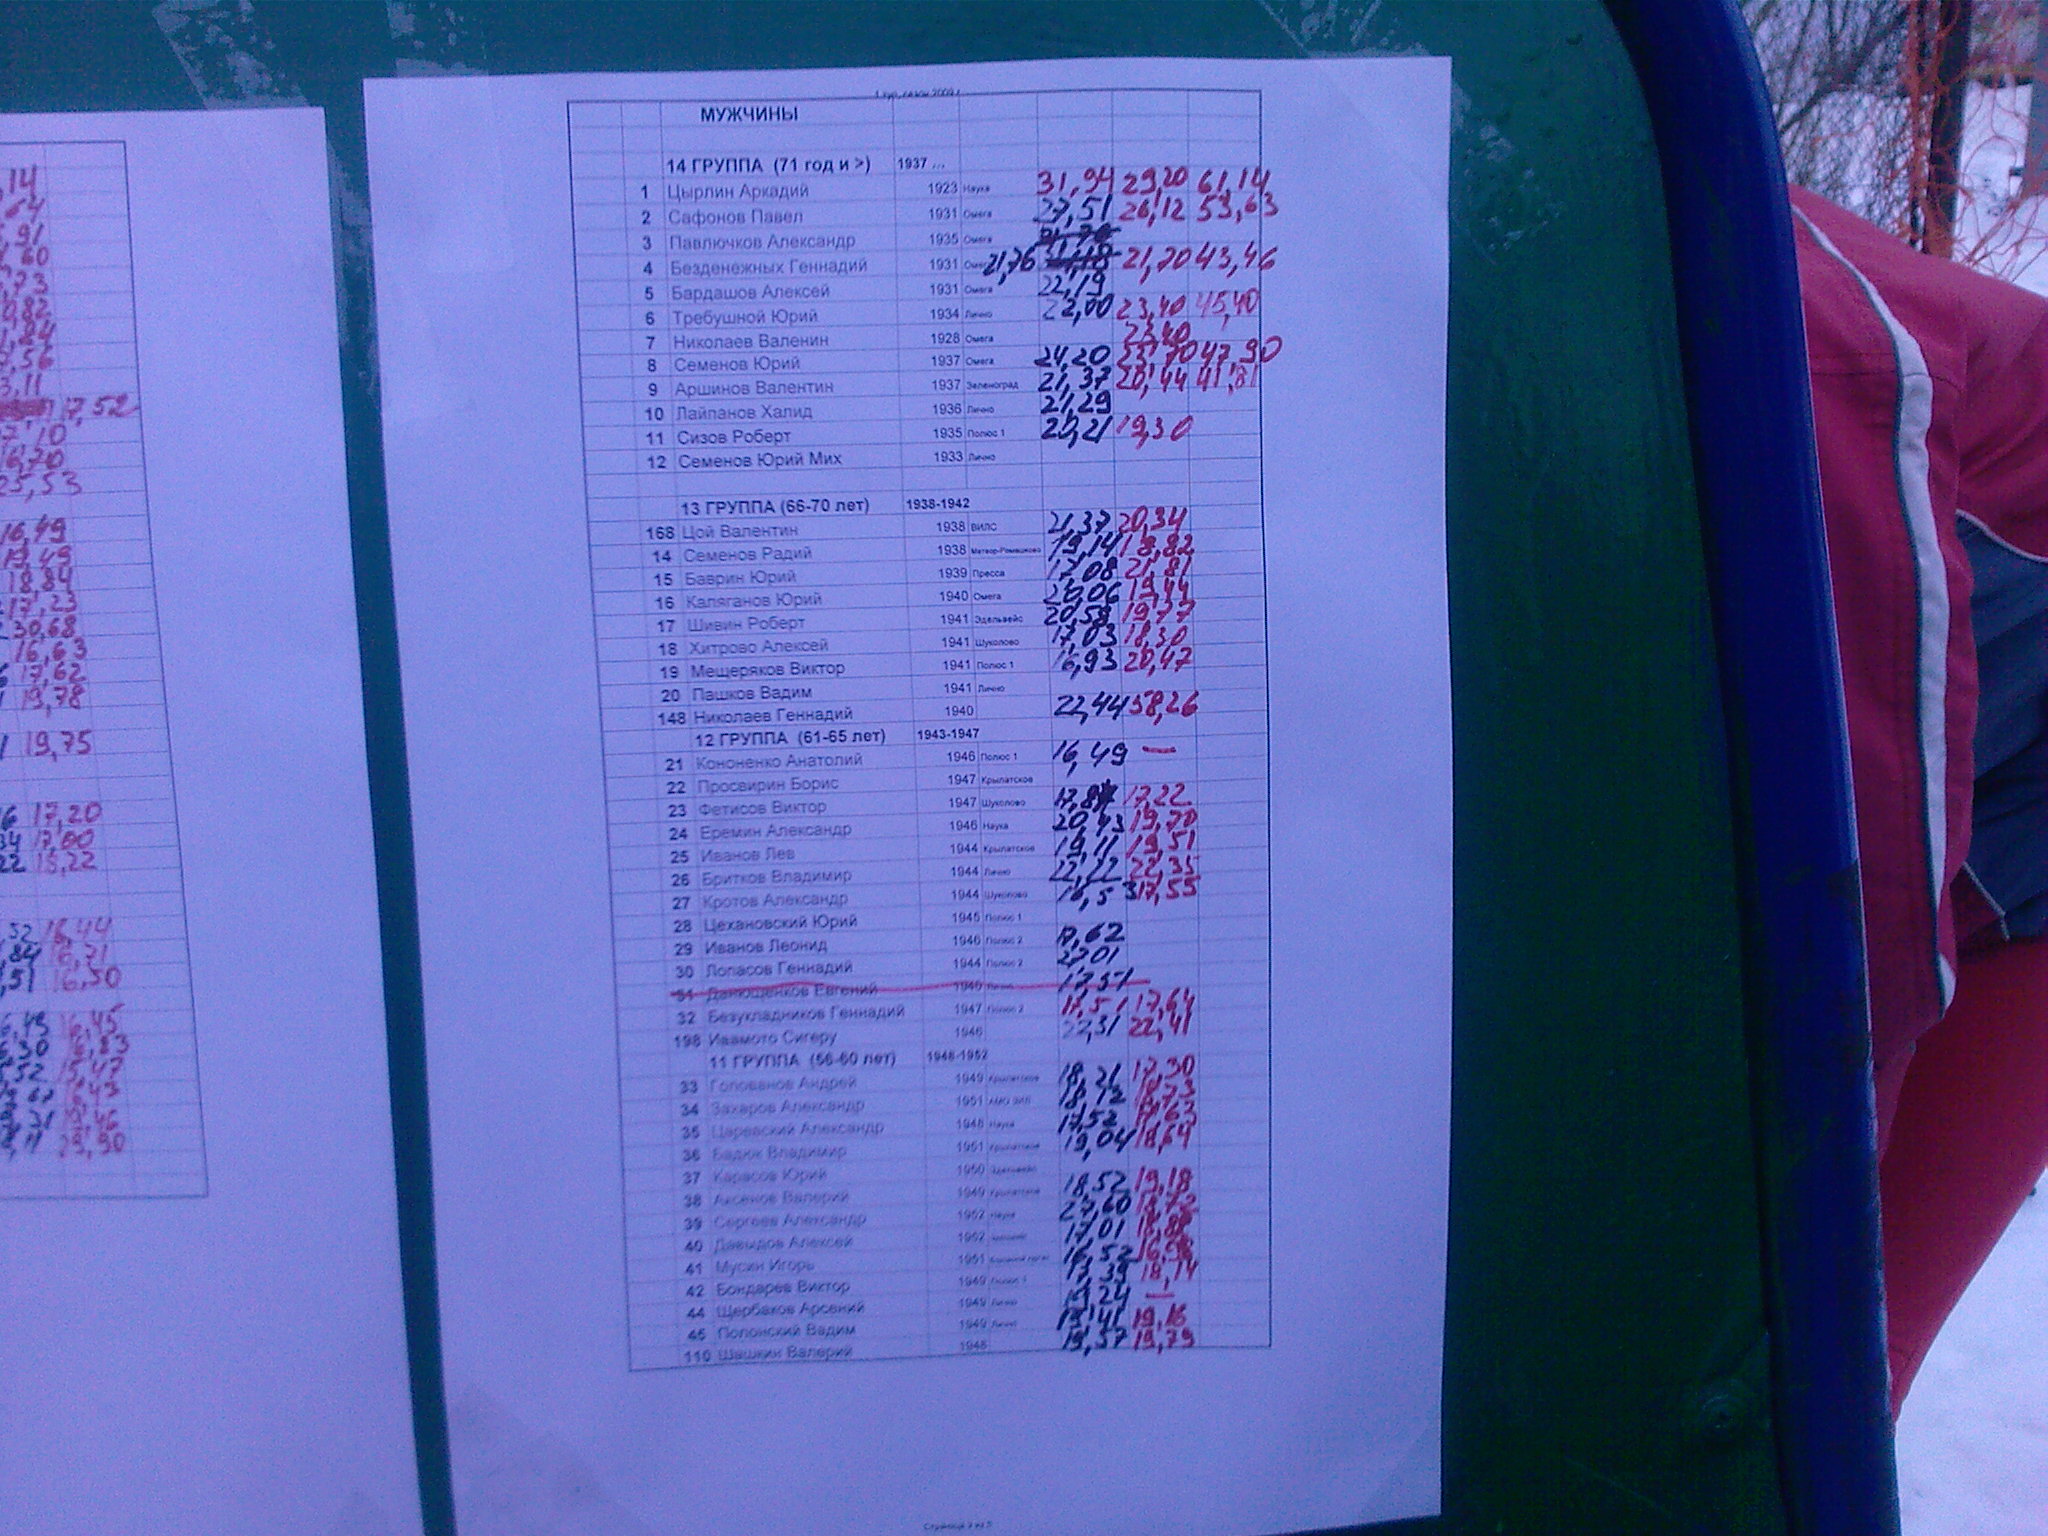 ,14
,64
,91
,60
,73
0,82
,56
3,11
17,52
17,10
16,70
25,53
16,49
19,49
17,23
30,68
16,63
17,62
19,78
19,75
17,20
34 17,00
22 15,22
,52 16,44
,84 16,21
,51 16,50
1 тур, сезон 2009 г.
МУЖЧИНЫ
14 ГРУППА (71 год и >) 1937 ...
1 Цырлин Аркадий 1923 Наука 31,94 29,20 61,14
2 Сафонов Павел 1931 Омега 27,51 26,12 53,63
3 Павлючков Александр 1935 Омега
4 Безденежных Геннадий 1931 Омега 21,76 21,70 43,46
5 Бардашов Алексей 1931 Омега 22,19
6 Требушной Юрий 1934 Лично 22,00 23,40 45,40
7 Николаев Валенин 1928 Омега 23,40
8 Семенов Юрий 1937 Омега 24,20 23,70 47,90
9 Аршинов Валентин 1937 Зеленоград 21,37 20,44 41,81
10 Лайпанов Халид 1936 Лично 21,29
11 Сизов Роберт 1935 Полюс 1 20,21 19,30
12 Семенов Юрий Мих 1933 Лично
13 ГРУППА (66-70 лет) 1938-1942
168 Цой Валентин 1938 ВИЛС 21,37 20,34
14 Семенов Радий 1938 Метеор-Ромашково 19,14 18,82
15 Баврин Юрий 1939 Пресса 17,08 21,81
16 Каляганов Юрий 1940 Омега 20,06 19,44
17 Шивин Роберт 1941 Эдельвейс 20,58 19,77
18 Хитрово Алексей 1941 Шуколово 17,03 18,30
19 Мещеряков Виктор 1941 Полюс 1 16,93 20,47
20 Пашков Вадим 1941 Лично
148 Николаев Геннадий 1940 22,44 58,26
12 ГРУППА (61-65 лет) 1943-1947
21 Кононенко Анатолий 1946 Полюс 1 16,49 —
22 Просвирин Борис 1947 Крылатское
23 Фетисов Виктор 1947 Шуколово 17,22
24 Еремин Александр 1946 Наука 20,43 19,70
25 Иванов Лев 1944 Крылатское 19,11 19,51
26 Бритков Владимир 1944 Лично 22,22 22,35
27 Кротов Александр 1944 Шуколово 16,53 17,55
28 Цехановский Юрий 1945 Полюс 1
29 Иванов Леонид 1946 Полюс 2 17,62
30 Лопасов Геннадий 1944 Полюс 2 27,01
31 Данющенков Евгений 1946 Лично 17,51
32 Безукладников Геннадий 1947 Полюс 2 17,51 17,64
198 Ивамото Сигеру 1946 22,31 22,41
11 ГРУППА (56-60 лет) 1948-1952
33 Голованов Андрей 1949 Крылатское 18,21 17,30
34 Захаров Александр 1951 АМО ЗИЛ 18,12 18,73
35 Царевский Александр 1948 Наука 17,52 17,63
36 Бадюк Владимир 1951 Крылатское 19,04 18,64
37 Карасов Юрий 1950 Эдельвейс
38 Аксенов Валерий 1949 Крылатское 18,52 19,18
39 Сергеев Александр 1952 Наука 27,60 18,72
40 Давыдов Алексей 1952 17,01
41 Мусин Игорь 1951 16,52
42 Бондарев Виктор 1949 Полюс 1 17,39 18,14
44 Щербаков Арсений 1949 Лично 15,24 —
45 Полонский Вадим 1949 Лично 19,41 19,16
110 Шашкин Валерий 1948 19,57 19,79
Страница 3 из 5